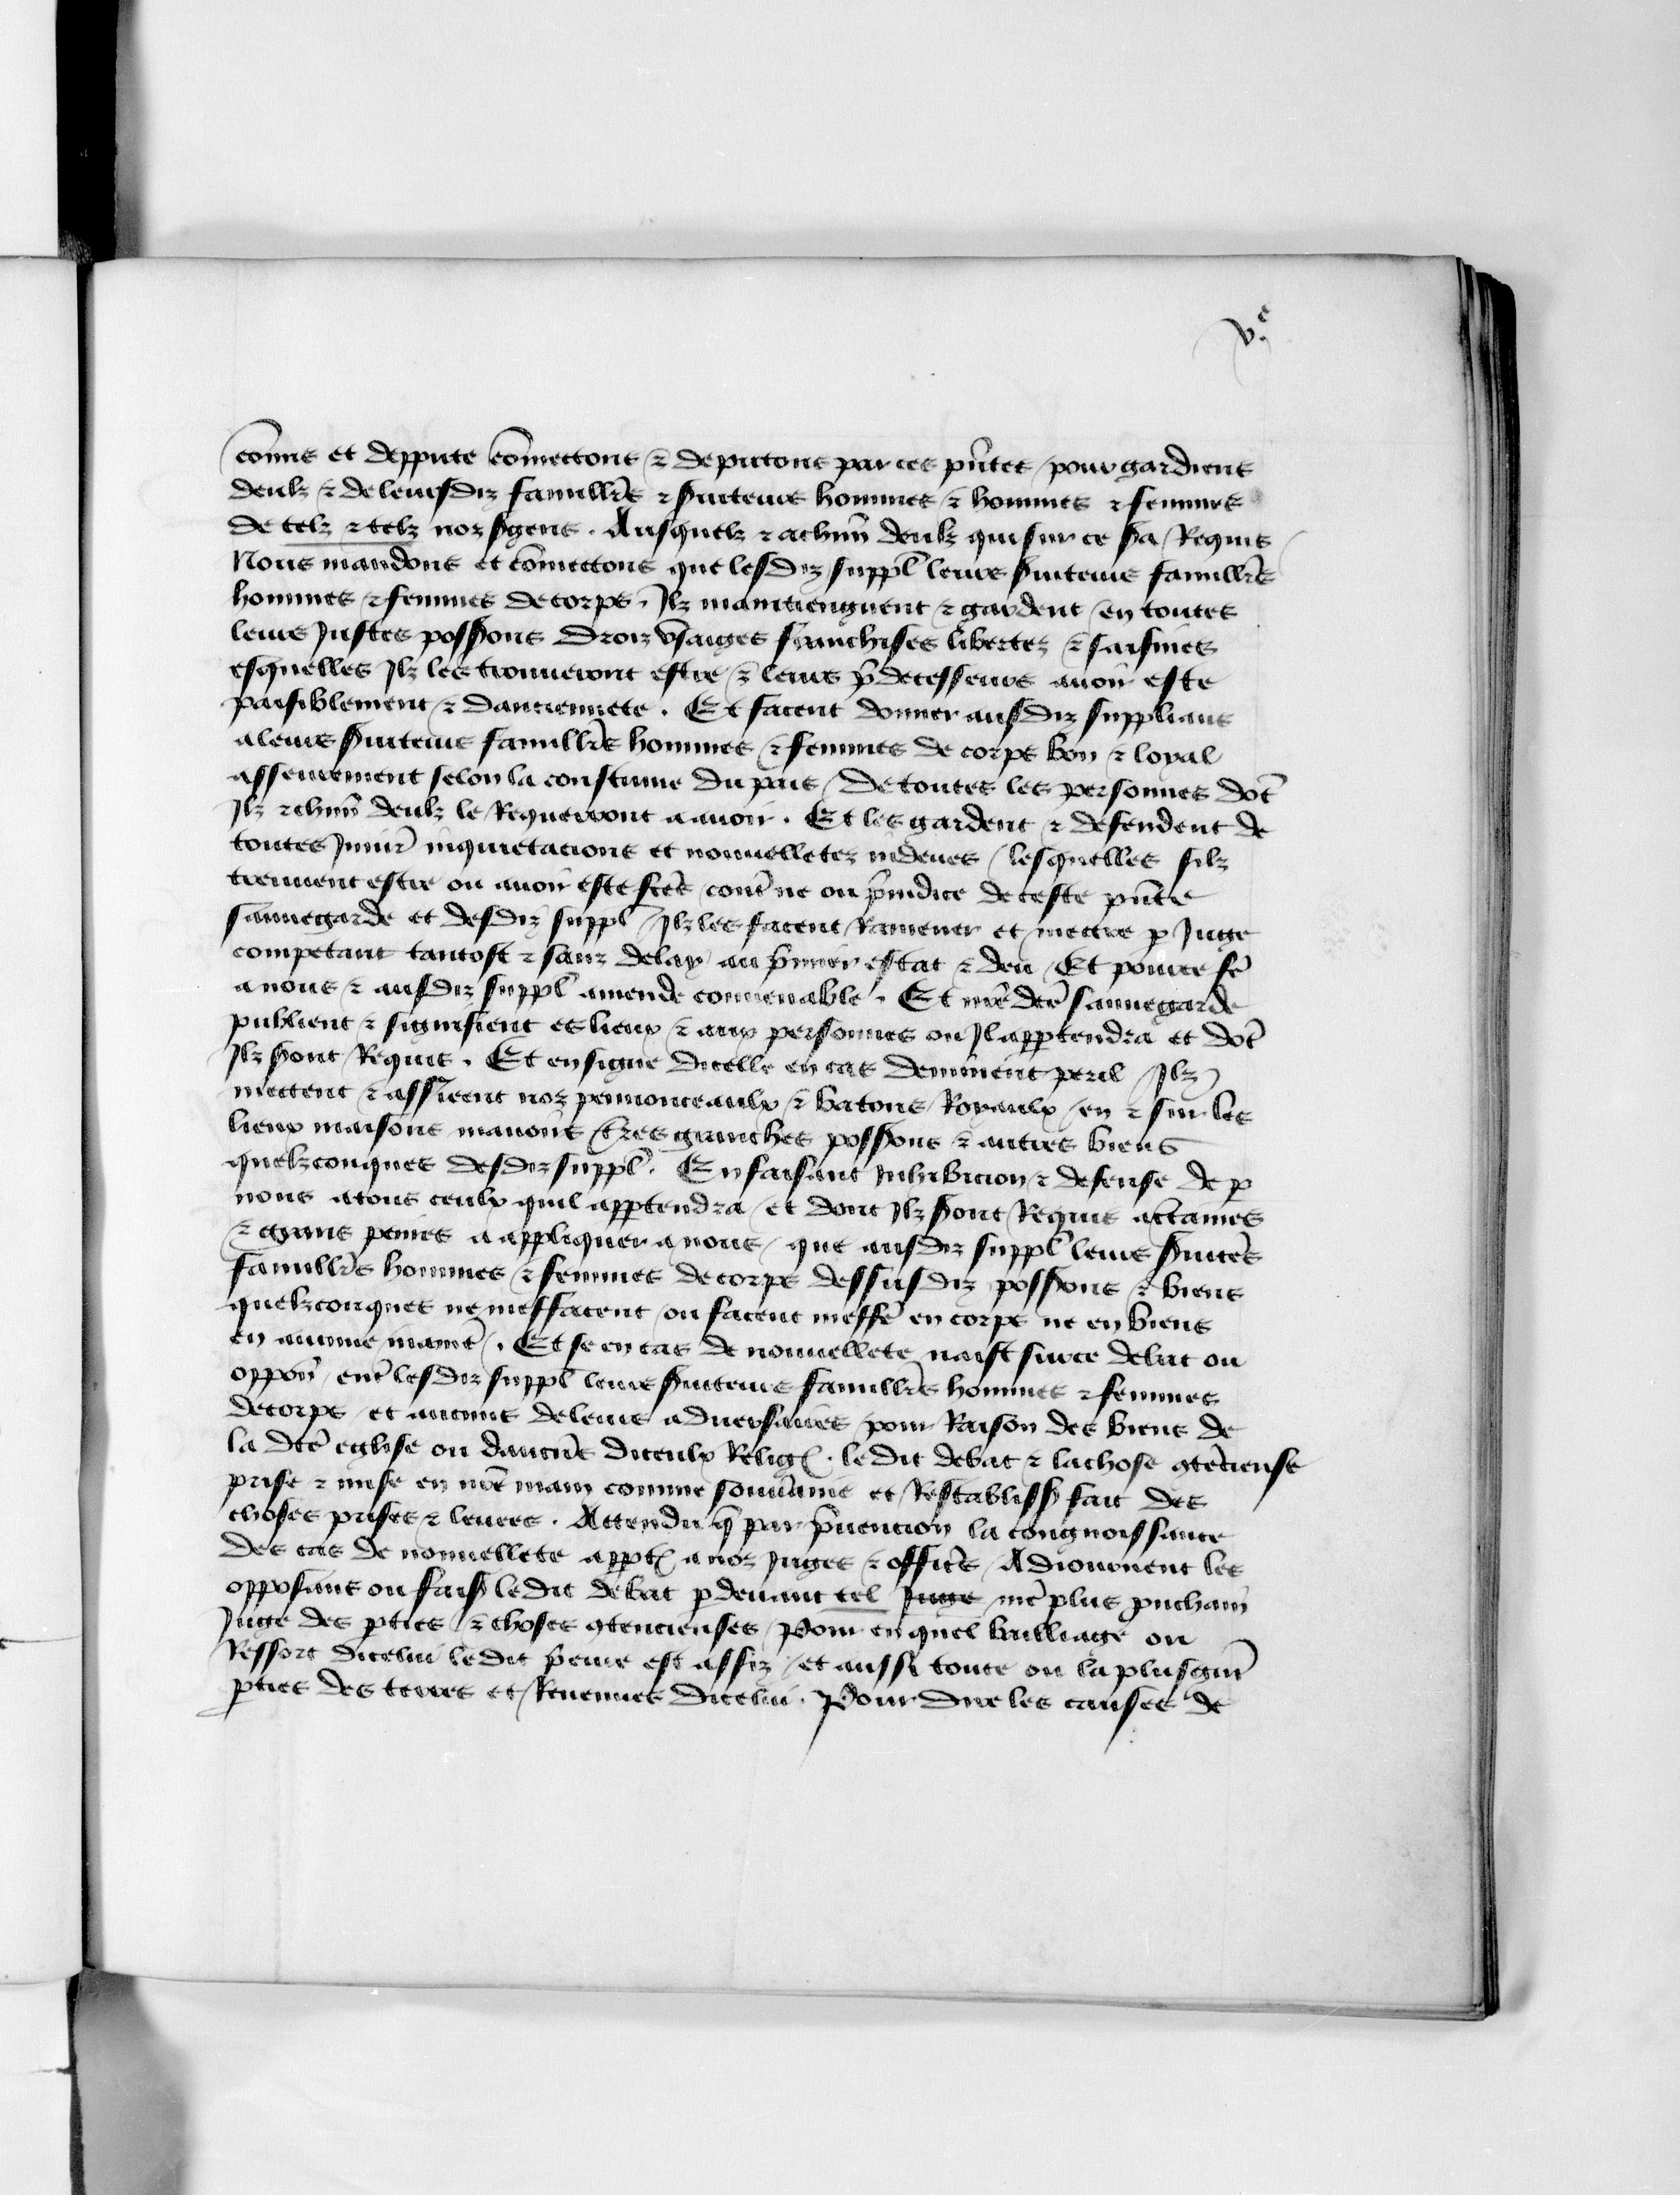 v.c
com̄is et deppute com̄ettons ⁊ deputons par ces pn̄tes pour gardiens
deulz ⁊ de leursdiz famill̄rs ⁊ suiteurs hommes ⁊ hommes ⁊ femmes
de telz ⁊ telz noz sgens . Ausquelz ⁊ achūn deulz qui sur ce sa Requis
Nous mandons et com̄ettons que lesdiz suppl̄ leurs suiteurs famill̄rs
hommes ⁊ femmes de corps . Ilz maintiengnent ⁊ gardent en toutes
leurs Justes possions droiz vsaiges franchises libertez ⁊ saisines
esquelles Ilz les trouueront estre ⁊ leurs p̄decesseurs auoir este
paisiblement ⁊ danciennete . Et facent donner ausdiz supplians
a leurs suiteurs famill̄rs hommes ⁊ femmes de corps bon ⁊ loyal
asseurement selon la coustume du pais de toutes les personnes dōt
Ilz ⁊ chūn deulz le Requerront a auoir . Et les gardent ⁊ defendent de
toutes Iniur̄ inquietacions et nouuelletez indeues lesquelles silz
treuuent estre ou auoir este fc̄es cont̄ ne ou p̄iudice de ceste pn̄te
sauuegarde et desdiz suppl̄ Ilz les facent Ramener et mectre p Juge
competant tantost ⁊ sanz delay au p̄mier estat ⁊ deu Et pource fe
a nous ⁊ ausdiz suppl̄ amende conuenable . Et nr̄e dc̄e sauuegarde
publient ⁊ signifient es lieux ⁊ aux personnes ou Il appartendra et dōt
Ilz sont Requis . Et en signe dicelle en cas deminent peril Ilz
mectent ⁊ assieent noz pennonceaulx ⁊ batons Royaulx en ⁊ sur les
lieux maisons manoirs tr̄es granches possions ⁊ autres biens
quelzconques desdiz suppl̄ . En faisant Inhibicion ⁊ defense de p
nous a tous ceulx quil appartendra et dont Ilz sont Requis a ct̄aines
⁊ grans peines a appliquer a nous que ausdiz suppl̄ leurs suitēs
famill̄rs hommes ⁊ femmes de corps dessusdiz possions ⁊ biens
quelzconques ne meffacent ou facent meffe en corps ne en biens
en aucune manīe . Et se en cas de nouuellete naist sur ce debat ou
oppon̄ ent̄ lesdiz suppl̄ leurs suiteurs famill̄rs hommes ⁊ femmes
de corps et aucuns de leurs aduersaires pour Raison des biens de
la dc̄e eglise ou daucūs diceulx Relig . le dit debat ⁊ la chose gtēcieuse
prise ⁊ mise en nr̄e main comme souūaine et Restabliss fait des
choses prises ⁊ leuees . Attendu q̄ par p̄uencion la congnoissance
des cas de nouuellete appt a noz Juges ⁊ officīs Adiournent les
opposans ou fais le dit debat pdeuant tel Juge nr̄e plus prochain
Juge des pties ⁊ choses gtencieuses Pour en quel bailliage ou
Ressort dicelui le dit p̄eure est assiz et aussi toute ou la plusgnt
pties des terres et Reuenues dicelui . Pour dire les causes de